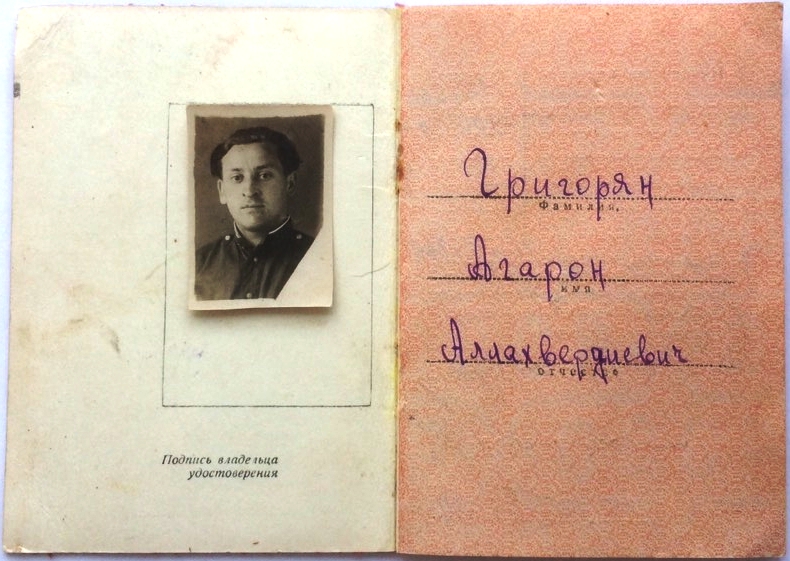 Подпись владельца
удостоверения
Григорян
Фамилия,
Агарон
имя
Аллахвердиевич
отчество